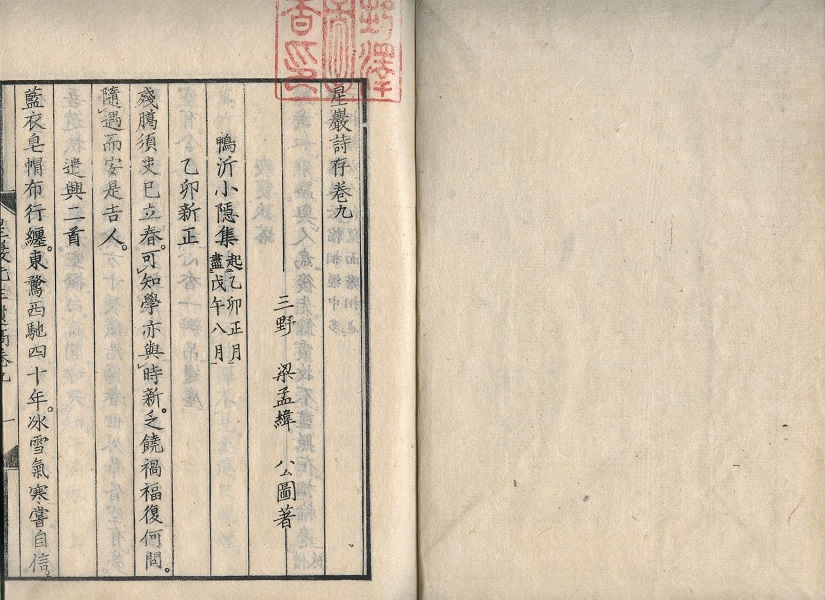 星巖詩存卷九
三野 梁孟緯 公圖著
鴨沂小隱集 起乙卯正月 盡戊午八月
乙卯新正
殘臈須臾已立春。可知學亦與時新。乏饒禍福復何問。
隨遇而安是吉人。
遣興二首
藍衣皂帽布行纏。東騖西馳四十年。冰雪氣寒嘗自信。